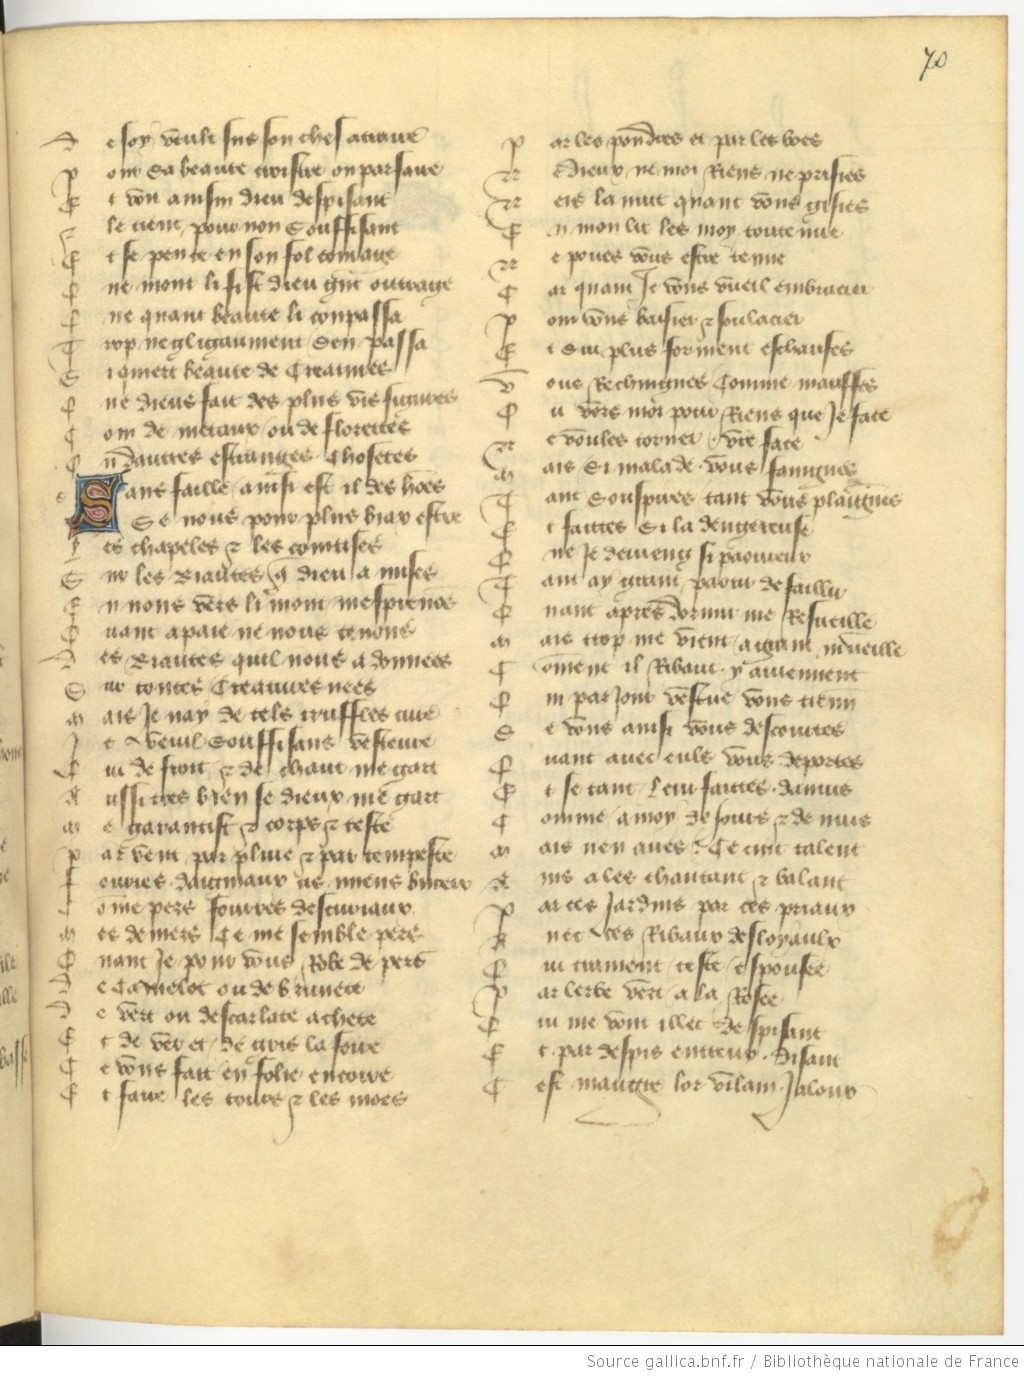 70
De soy veult sus son chef atraire
Pour sa beaute croistre ou parfaire
Et von ainsin dieu despisant
le tient pour non souffisant
Et se pense en son fol courage
Que mont li fist dieu grant outrage
Que quant beaute li conpassa
Trop negligaument sen passa
Si quiert beaute de creatures
Que dieus fait des plus vis figures
Com de metaux ou de florettes
Ou dautres estranges chosetes
Sans faille ainsi est il des homes
Se nous pour plus biax estre
Les chapeles et les cointises
Sur les biautes que dieu a mises
En nous vers li mont mesprenons
Quant apaie ne nous tenons
Des biautes quil nous a donnees
Sur toutes creatures nees
Mais Je nay de tels truffles cure
Je veuil souffisans vesteure
Qui de froit et de chaut me gart
Aussi tres bien se dieux me gart
Me garantist et corps et teste
Par vent par pluie et par tempeste
Fourres daigniaux cis miens bureaux
Come pers fourres descuriaux
Mes deniers ce me semble pers
Quant Je pour vous Robe de pers
De camelot ou de brunete
De vert ou descarlate achete
Et de ver et de gris la fourre
Ce vous fait en folie encorre
Et faire les tours et les moes
Par les pondres et par les boes
Ne dieux ne moi Riens ne prisies
Neis la nuit quant vous gisies
En mon lit les moy toute nue
Ne poues vous estre tenue
Car quant Je vous vueil embracier
Pour vous baisier et soulacier
Et sui plus forment eschaufes
Vous Rechingnes comme mauffes
Ou vers moi pour Riens que Je face
Ne voules torner vostre face
Mais si malade vous faingnies
Tant souspires tant vous plaingnies
Et faittes si la dengereuse
Que Je devieng si paoureux
Tant ay grant paour de faillir
Quant apres dormir me Resueille
Mais trop me vient a grant merveille
Coment il Ribaut y aviennent
Qui par Jour vestue vous tiennent
Se vous ainsi vous descortes
Quant avec euls vous deportes
Et se tant leur faittes danuis
Comme a moy de Jours et de nuis
Mais nen aves ce cuit talent
Ains ales chantant et balant
Par ces Jardins par ces priaux
Avec ces Ribaux desloyaulx
Qui trainent ceste espousee
Par lerbe vert a la Rosee
Qui me vont illec despisant
Et par despis entreux disant
Cest maugre lor vilain Jaloux